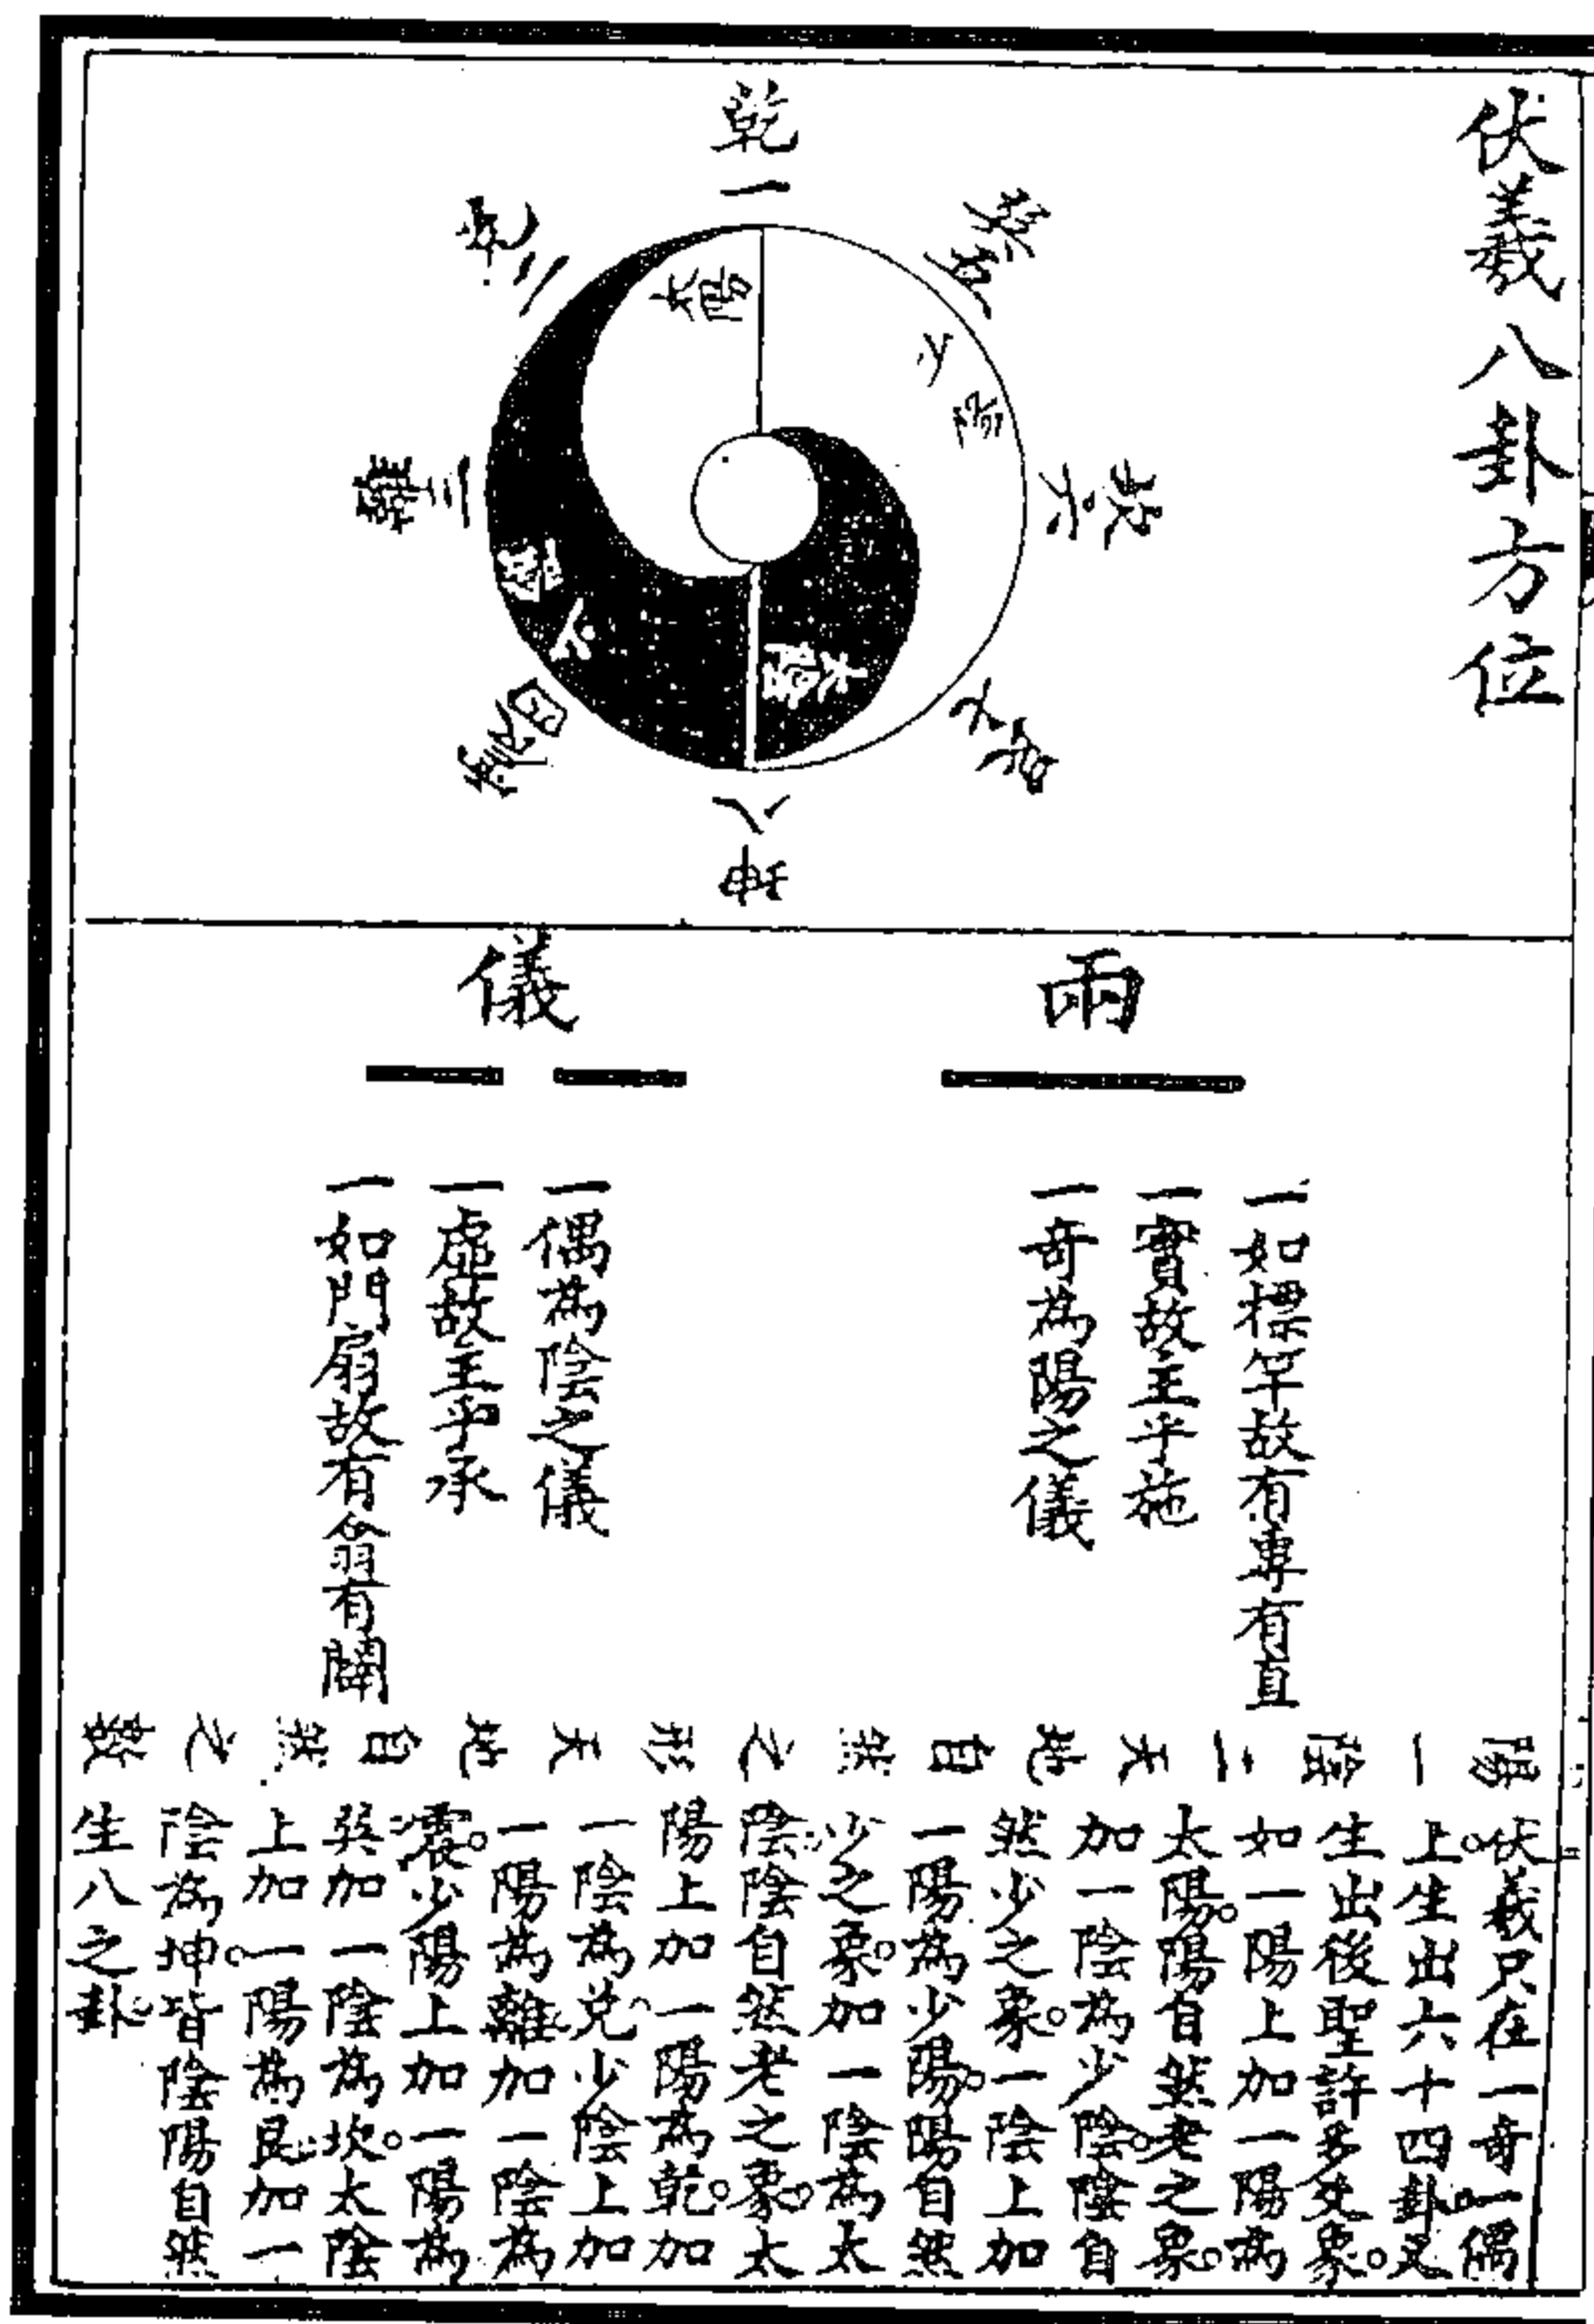 伏羲八卦方位
乾一
兌二
離三
震四
巽五
坎六
艮七
坤八
太陽
少陰
少陽
太陰
兩儀
一如標竿故有專有直
一實故主乎施
一奇為陽之儀
一偶為陰之儀
一虛故主乎承
一如門扇故有翕有闢
陽一陰二天地自然之形天地自然之數
伏羲只在一奇一偶
上生出六十四卦又
生出後聖許多爻象。
如一陽上加一陽為
太陽。陽自然老之象。
加一陰為少陰。陰自
然少之象。一陰上加
一陽為少陽。陽自然
少之象。加一陰為太
陰。陰自然老之象。太
陽上加一陽為乾。加
一陰為兌。少陰上加
一陽為離。加一陰為
震。少陽上加一陽為
巽。加一陰為坎。太陰
上加一陽為艮。加一
陰為坤。皆陰陽自然
生八之卦。